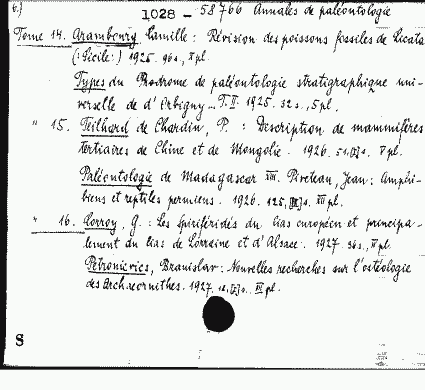 6.) 1028 - 58766 Annales de paléontologie
Tome 14. Arambourg Camille: Révision des poissons fossiles de Licata
(:Sicile:) 1925. 96s., X pl.
Types du Prodrome de paléontologie stratigraphique uni-
verselle de d'Orbigny. T. II. 1925. 32 s., 5 pl.
" 15. Teilhard de Chardin, P. : Description de mammifères
tertiaires de Chine et de Mongolie. 1926. 51, s. V pl.
Paléontologie de Madagascar XIII. Piveteau, Jean: Amphi-
biens et reptiles permiens. 1926. 125, s. XII pl.
" 16. Corroy, G.: Les spiriféridés du lias européen et principa-
lement du lias de Lorraine et d'Alsace. 1927. 36 s., pl.
Petronievics, Branislav: Nouvelles recherches sur l'ostéologie
des Archaeornithes. 1927. pl.
8